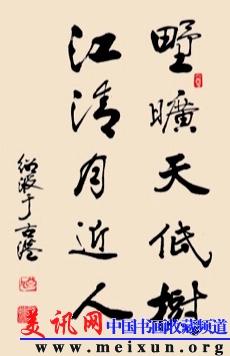 野曠天低樹
江清月近人
美讯网
中国书画收藏频道
www.meixun.org